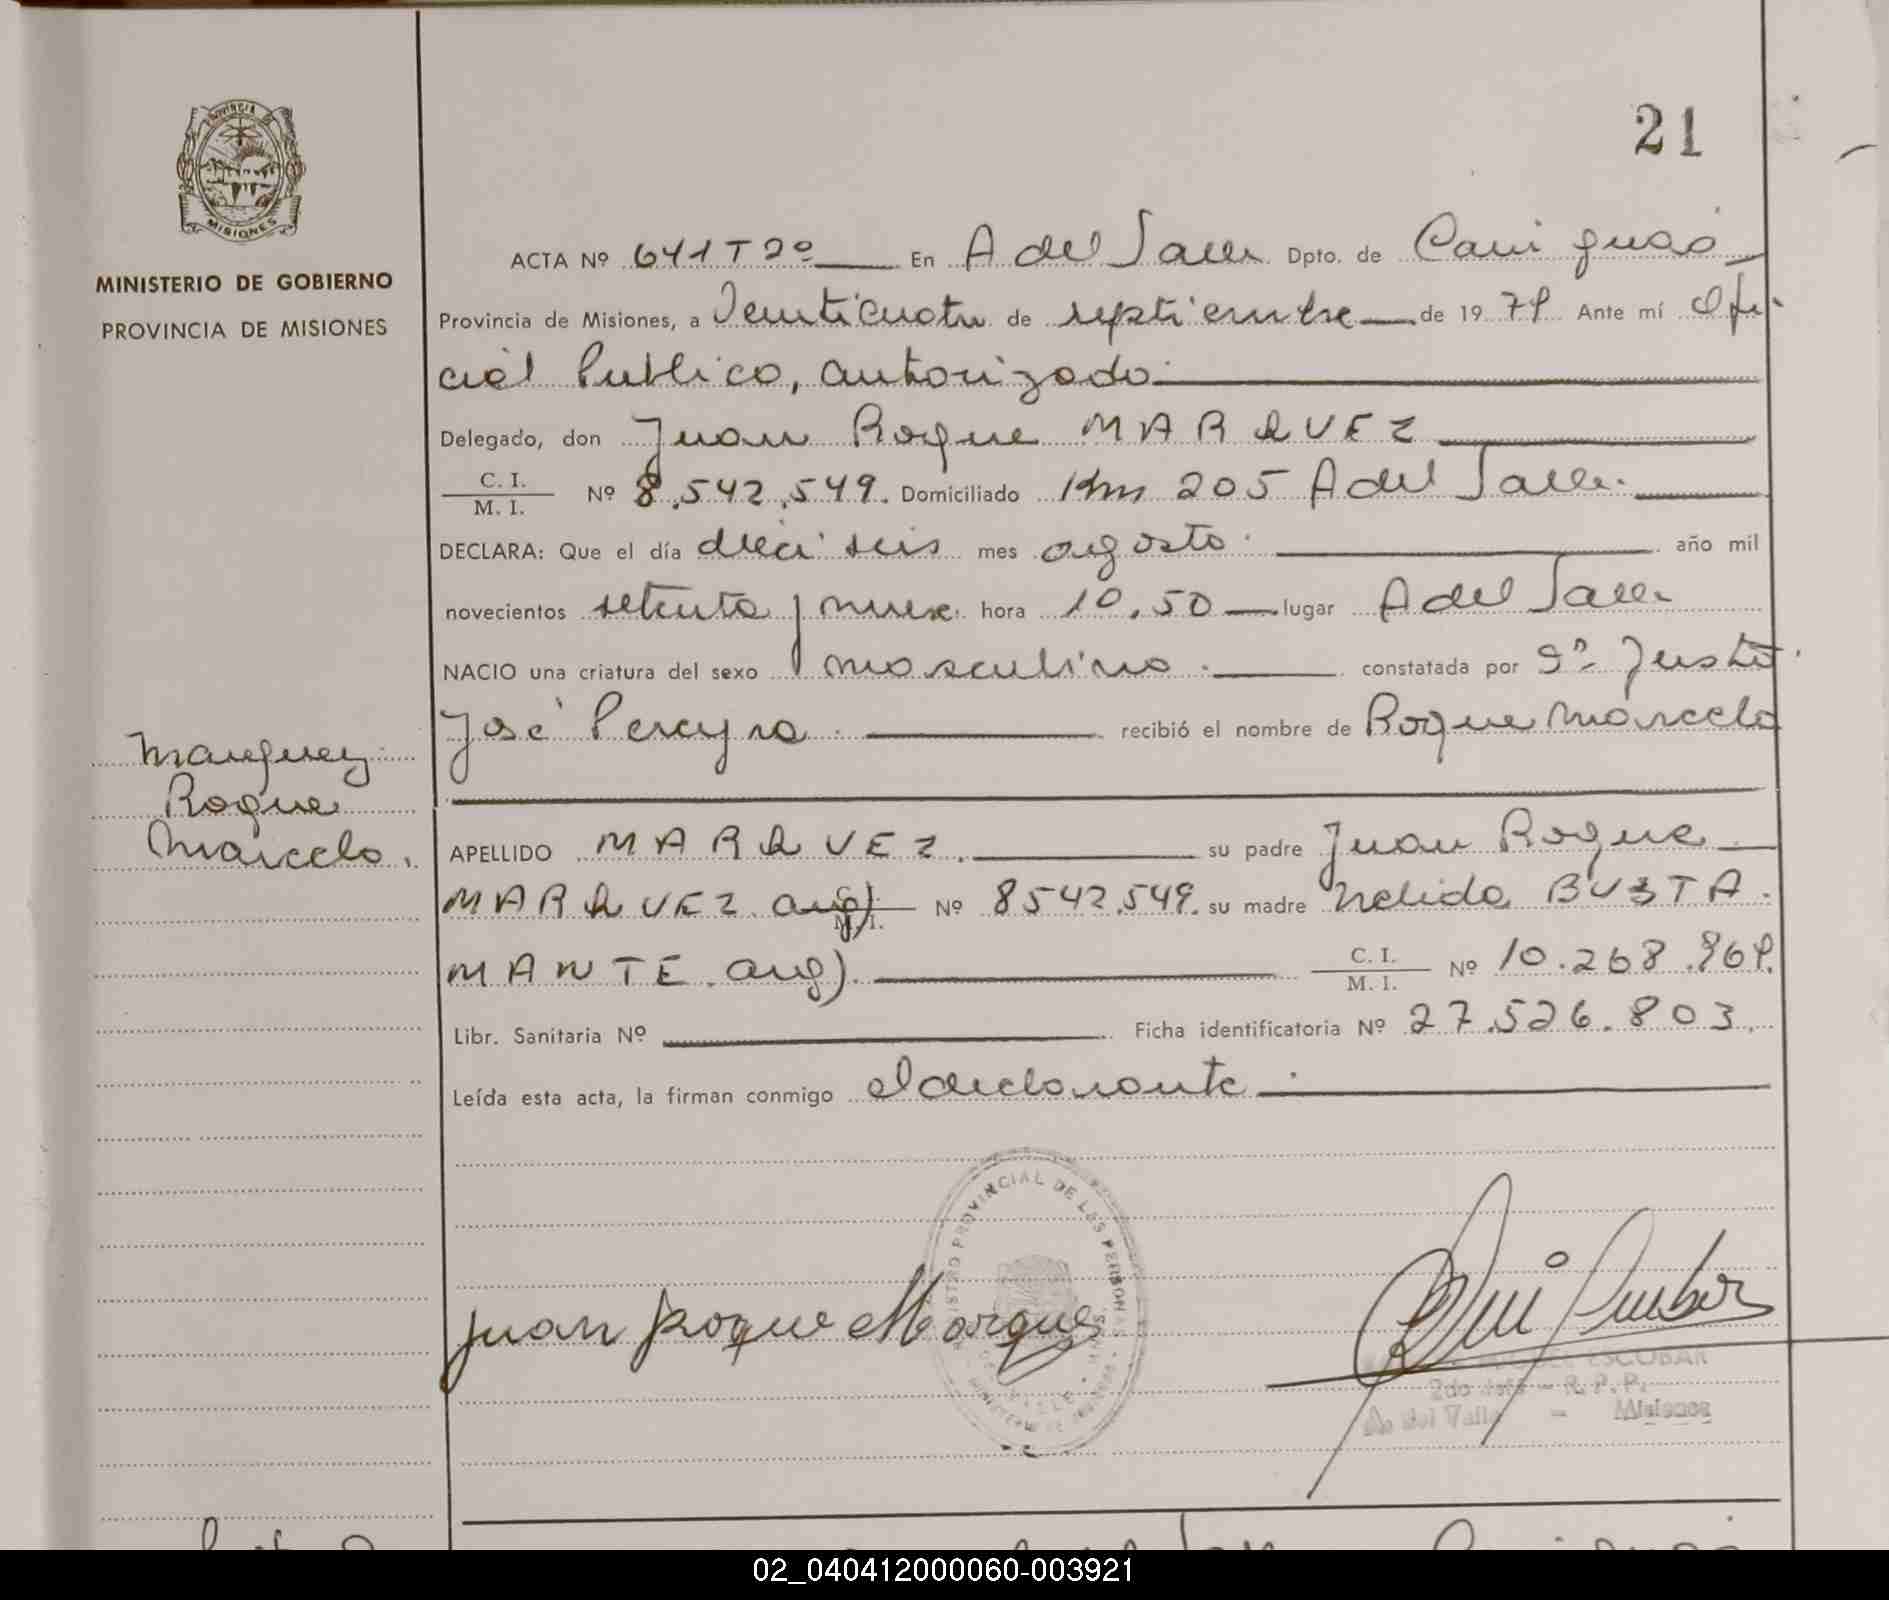 21
PROVINCIA DE
MISIONES
MINISTERIO DE GOBIERNO
PROVINCIA DE MISIONES
ACTA Nº 641 T 2º En A del Valle Dpto. de Cainguás
Provincia de Misiones, a Veinticuatro de septiembre de 1979 Ante mí Ofi-
cial Publico, autorizado.
Delegado, don Juan Roque MARQUEZ
C. I.
M. I. Nº 8.542.549. Domiciliado Km 205 A del Valle.
DECLARA: Que el día dieciseis mes agosto. año mil
novecientos setenta y nueve. hora 10.50 lugar A del Valle
NACIO una criatura del sexo masculino. constatada por Justo
José Pereyra. recibió el nombre de Roque Marcelo
Marquez
Roque
Marcelo.
APELLIDO MARQUEZ. su padre Juan Roque
MARQUEZ arg) M. I. Nº 8542.549. su madre Nelida BUSTA
MANTE. arg). C. I.
M. I. Nº 10.268.969.
Libr. Sanitaria Nº Ficha identificatoria Nº 27.526.803.
Leída esta acta, la firman conmigo el declarante.
REGISTRO PROVINCIAL DE LAS PERSONAS
Juan Roque Marquez
ESCOBAR
2do Jefe - R.P.P.
A. del Valle - Misiones
02_040412000060-003921